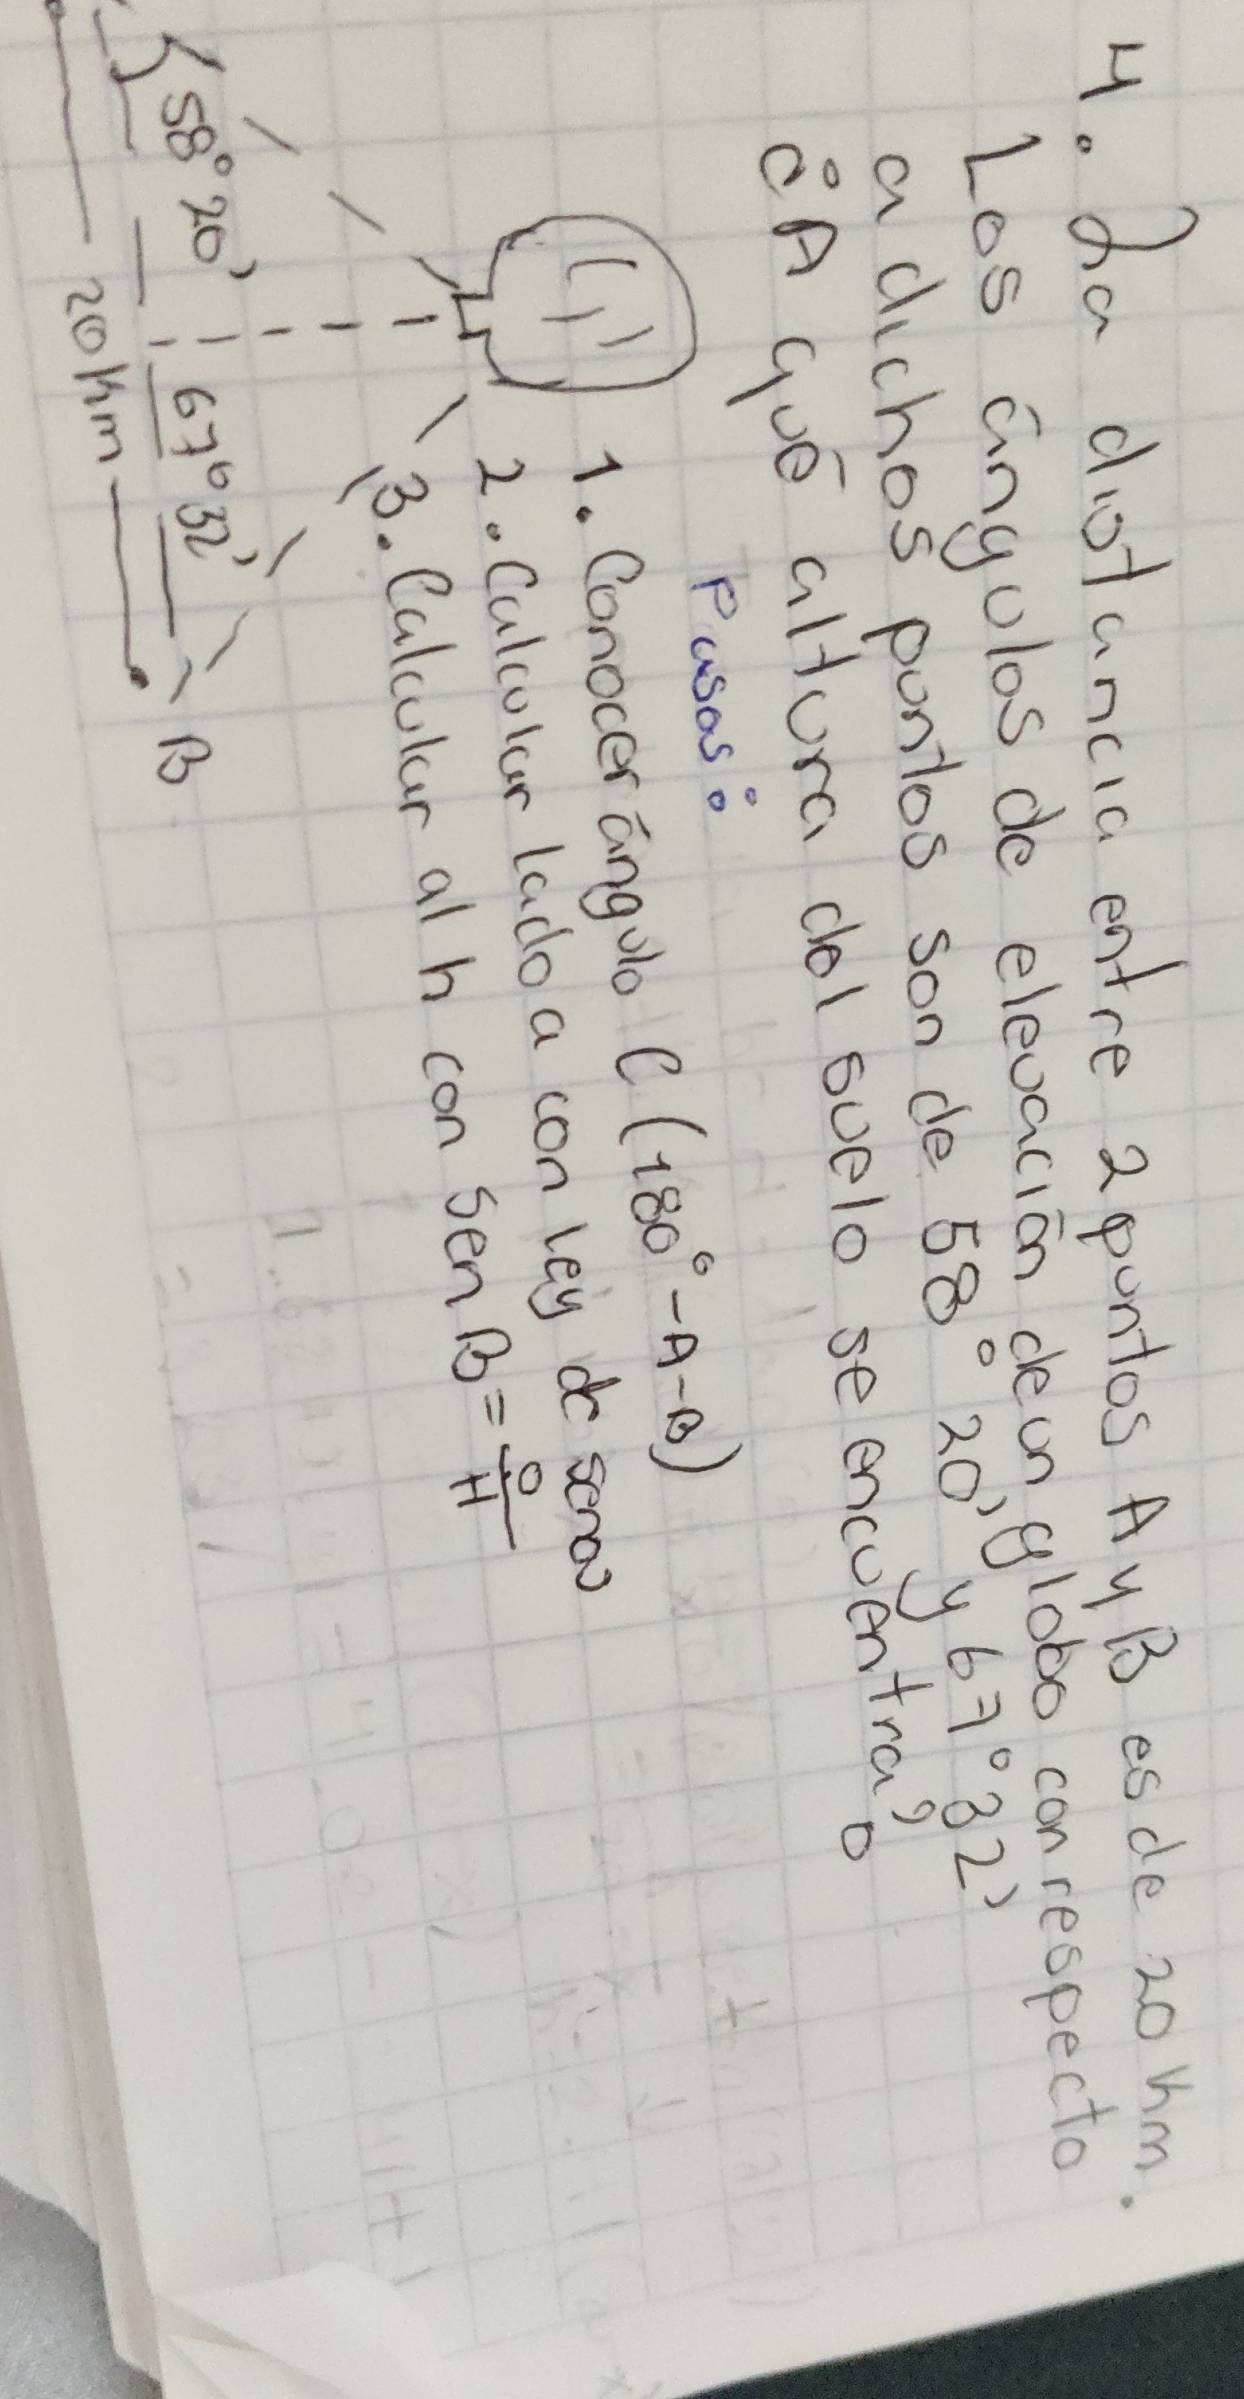 4. La distancia entre 2 puntos A y B es de 20 km.
Los ángulos de elevación de un globo con respecto
a dichos puntos son de 58° 20' y 67° 32'
¿A qué altura del suelo se encuentra?
Pasos:
1. Conocer ángulo C (180° - A - B)
2. Calcular lado a con ley de senos
3. Calcular al h con sen B = O/H
58° 20' 67° 32' B
20 km